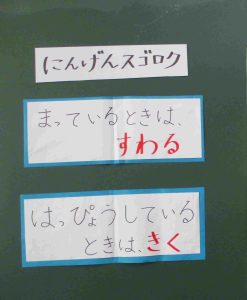 にんげんスゴロク
まっているときは、
すわる
はっぴょうしている
ときは、きく